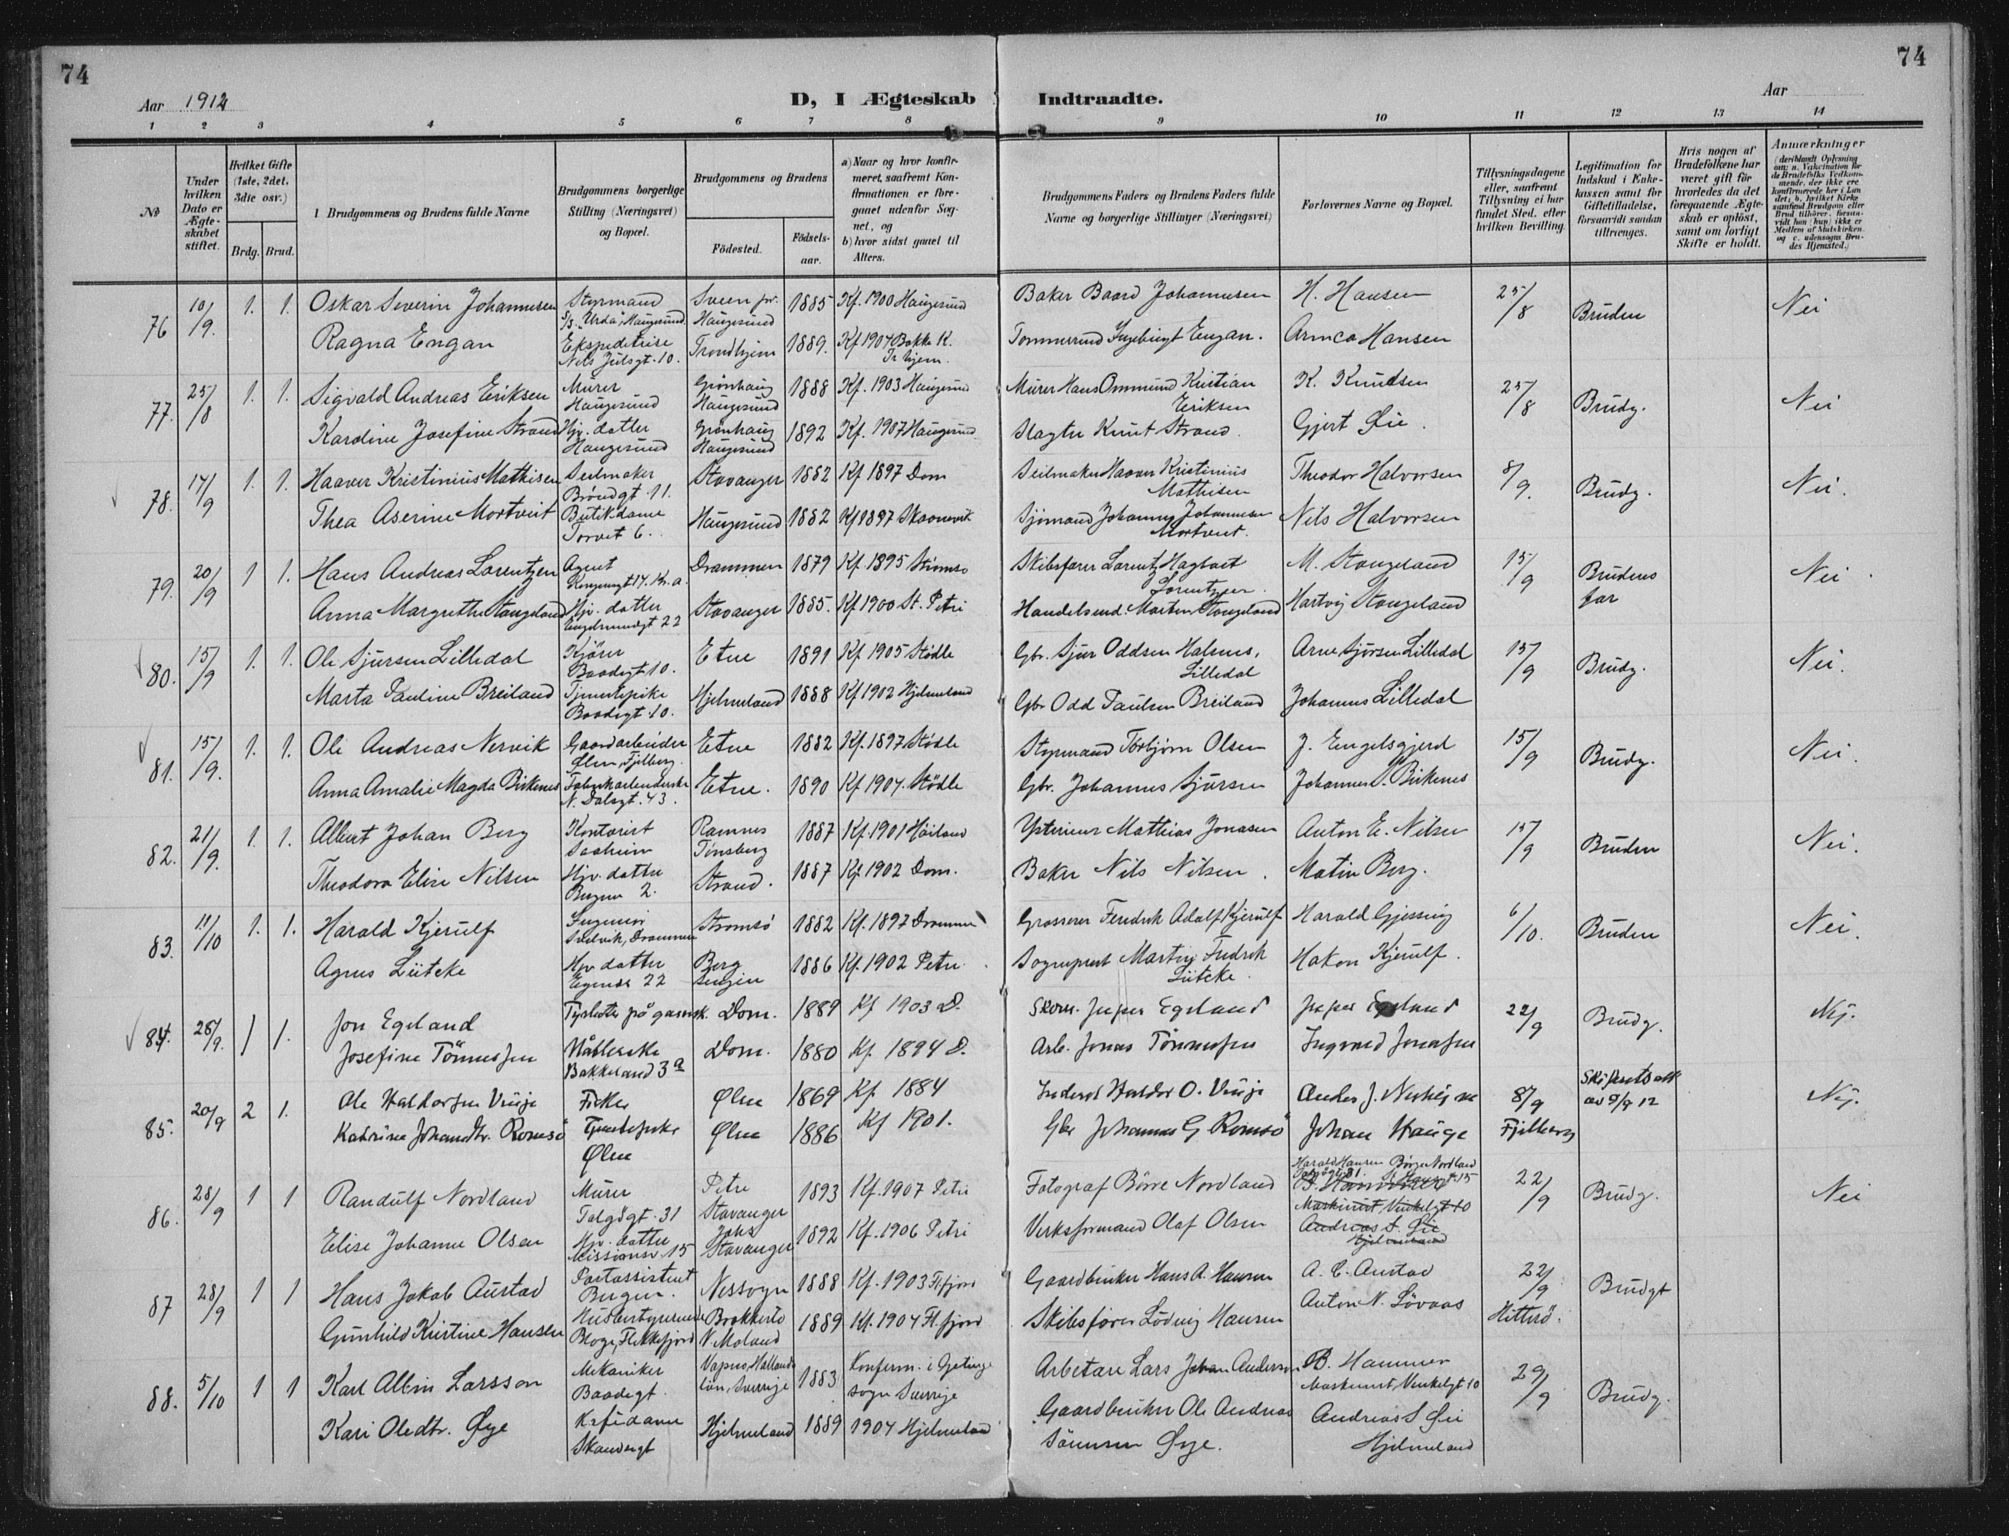 74
74
Aar 1912
D, I Ægteskab Indtraadte.
Aar
1 2 3 4 5 6 7 8 9 10 11 12 13 14
No
Under hvilken Dato er Ægteskabet stiftet.
Hvilket Gifte (1ste, 2det, 3die osv.)
Brdg. Brud.
1 Brudgommens og Brudens fulde Navne
Brudgommens borgerlige Stilling (Næringsvei) og Bopæl.
Brudgommens og Brudens
Fødested.
Fødselsaar.
a) Naar og hvor konfirmeret, saafremt Konfirmationen er foregaaet udenfor Sognet, og
b) hvor sidst gaaet til Alters.
Brudgommens Faders og Brudens Faders fulde Navne og borgerlige Stillinger (Næringsvei)
Forlovernes Navne og Bopæl.
Tillysningsdagene eller, saafremt Tillysning ei har fundet Sted, efter hvilken Bevilling.
Legitimation for Indskud i Enkekassen samt for Giftetilladelse, forsaavidt saadan tiltrænges.
Hvis nogen af Brudefolkene har været gift før hvorledes da det foregaaende Ægteskab er opløst, samt om lovligt Skifte er holdt.
Anmærkninger
76 10/9. 1. 1. Oskar Severin Johannesen Styrmand S/S. "Urda", Haugesund Sveen pr. Haugesund 1885 Kf. 1900 Haugesund Baker Baard Johannesen H. Hansen 25/8 Bruden Nei
Ragna Engan Ekspeditrise Nils Julsgt. 10. Trondhjem 1889. Kf 1904 Bakke K. Tr.hjem. Tømmermd Ingebrigt Engan. Hansen
77. 25/8 1. 1. Sigvald Andreas Eriksen Murer Haugesund Grønhaug Haugesund 1888 Kf. 1903 Haugesund Murer Hans Ommund Kristian Eriksen K. Knudsen 25/8 Brudg. Nei
Karoline Josefine Strand Hjv. datter Haugesund Grønhaug Haugesund 1892 Kf. 1907 Haugesund Slagter Knut Strand. Gjert Øie.
78. 17/9 1. 1. Haaver Kristinius Mathisen Seilmaker Brøndgt. 11. Stavanger 1882 Kf 1897 Dom Seilmaker Haaver Kristinius Mathisen Theodor Halvorsen 8/9. Brudg. Nei.
Thea Aserine Mortveit Butikdame Torvet 6. Haugesund 1882 Kf 1897 Skaanevik Sjømand Johannes Johannesen Mortveit. Nils Halvorsen
79. 20/9 1 1. Hans Andreas Lorentzen Agent Kongensgt 17. Kr.a. Drammen 1879 Kf. 1895 Strømsø Skibsfører Lorentz Hagbart Lorentzen. M. Stangeland 15/9 Brudens far Nei
Anna Margrethe Stangeland Hjv. datter 22 Stavanger 1885. Kf 1900 St. Petri Handelsmd. Morten Stangeland Hartvig Stangeland
80. 15/9 1. 1. Ole Sjursen Lilledal Kjører Baadegt 10. Etne 1891 Kf 1905 Stødle Gbr. Sjur Oddsen Halsnes, Lilledal Arne Sjørsen Lilledal 15/9 Brudg. Nei.
Marta Pauline Breiland Tjenestepike Baadegt. 10. Hjelmeland 1888 Kf 1902 Hjelmeland Gbr Odd Paulsen Breiland Johannes Lilledal
81. 15/9. 1. 1. Ole Andreas Nervik Gaardarbeider Ølen, Fjelberg. Etne 1882 Kf. 1897 Stødle Styrmand Torbjørn Olsen J. Engelsgjerd 15/9 Brudg. Nei.
Anna Amalie Magda Birkenes Fabrikarbeiderske N. Dalsgt. 43. Etne. 1890 Kf 1904. Stødle Gbr. Johannes Sjursen Johannes S. Birkenes
82. 21/9. 1. 1. Albert Johan Berg Kontorist Saaheim Ramnes Tønsberg 1887 Kf. 1901 Høiland Ysterieier Mathias Jonasen Anton E. Nilsen 15/9 Bruden Nei.
Theodora Elise Nilsen Hjv. datter Bergsm 2. Strand. 1887 Kf 1902 Dom. Baker Nils Nilsen. Matin Berg.
83. 11/10 1. 1. Harald Kjerulf Ingeniør Selvik, Drammen Strømsø 1882 Kf. 1897 Drammen Grosserer Fredrik Adolf Kjerulf Harald Gjessing 6/10. Bruden Nei.
Agnes Lütcke Hjv. datter Egenes 22 Berg Senjen 1886 Kf. 1902 Petri Sogneprest Martin Fredrik Lütcke. Hakon Kjerulf.
84. 28/9. 1 1. Jon Egeland Dom. 1889 Kf 1903 D. Skom. Jesper Egeland Jesper Egeland 22/9 Brudg. Nej.
Josefine Tønnessen Bakkeland 3a Dom. 1880 Kf. 1894 D. Arb. Jonas Tønnessen Ingvard Jonassen
85. 20/9 2 1. Ole Haldorsen Vinje Fisker Ølen 1869 Kf. 1884 Inderst Haldor O. Vinje Anders J. 8/9 Fjelberg Skifteretsatt av 9/9 12 Nej.
Katrine Johansdtr. Romsø Tjenestepike Ølen Ølen 1886 Kf 1901. Gbr Johannes G Romsø Johan Hauge
86. 28/9 1 1 Randulf Nordland Murer Talgøgt. 31 Petri Stavanger 1893 Kf. 1907 Petri Fotograf Børre Nordland Harald Hansen Børge Nordland 22/9 Brudg. Nei
B. Hammer Maskinist Venkelgt 10
Elise Johanne Olsen Hjv. datter Missionsv 15 Joh. Stavanger 1892 Kf. 1906 Petri Verksformand Olaf Olsen Andreas S. Øie Hjelmeland
87 28/9 1 1 Hans Jakob Austad Postassistent Bergen. Nessogn 1888 Kf. 1903 Fl.fjord Gaardbruker Hans A. Hansen A. C. Austad 22/9 Hitterø. Brudgt
Gunhild Kristine Hansen Husbestyrerinde Flekkefjord Brokkestø V. Moland 1889 Kf. 1904 Fl.fjord Skibsfører Lodvig Hansen Anton N. Løvaas
88. 5/10 1 1 Karl Albin Larsson Mekaniker Baadegt. Vapnø, Hallands län, Sverrige 1883 Konferm. i Getinge sogn Sverrige Arbetare Lars Johan Anderson B. Hammer Maskinist, Venkelgt 10 29/9 Brudg.
Kari Oledtr. Øye Kafédame Skandsegt Hjelmeland 1889 1904 Hjelmeland Gaardbruker Ole Andreas Sørensen Øye. Andreas S Øie Hjelmeland